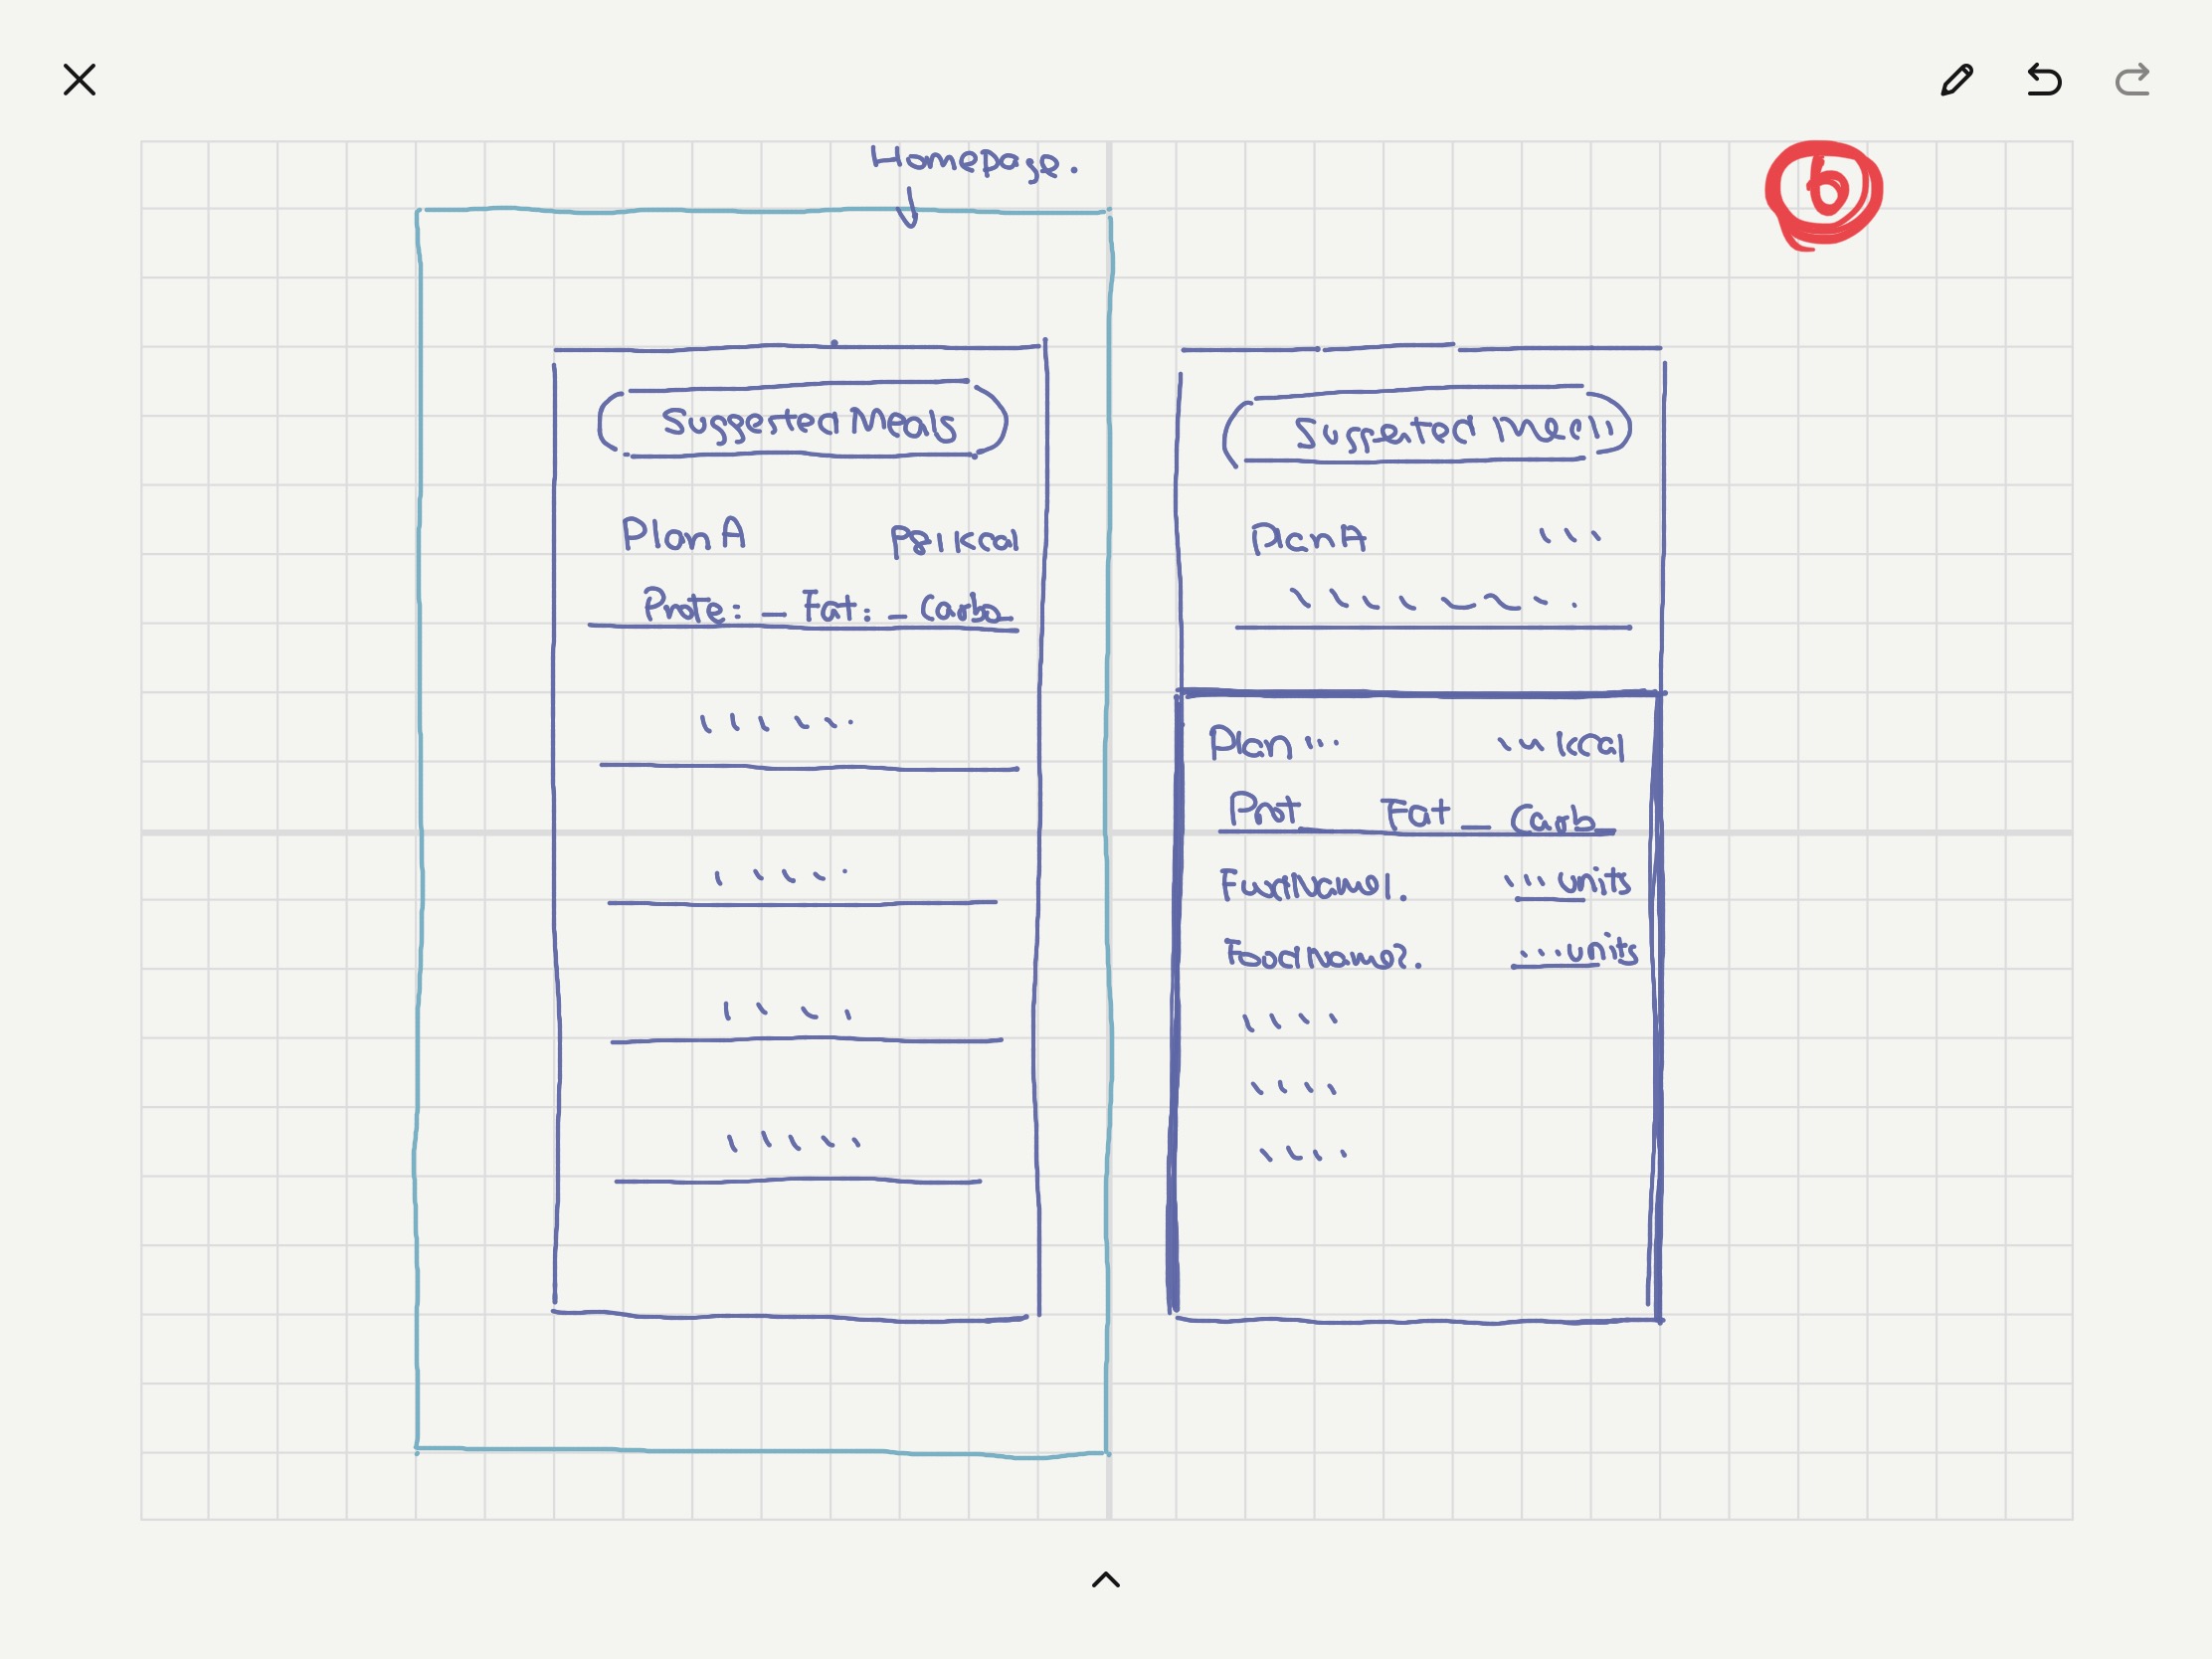 Homepage.
6
Suggested Meals
Plan A
kcal
Prote: _ Fat: _ Carb _
Suggested meals
Plan A ...
Plan ... ... kcal
Prot _ Fat _ Carb _
FoodName1. ... units
FoodName2. ... units